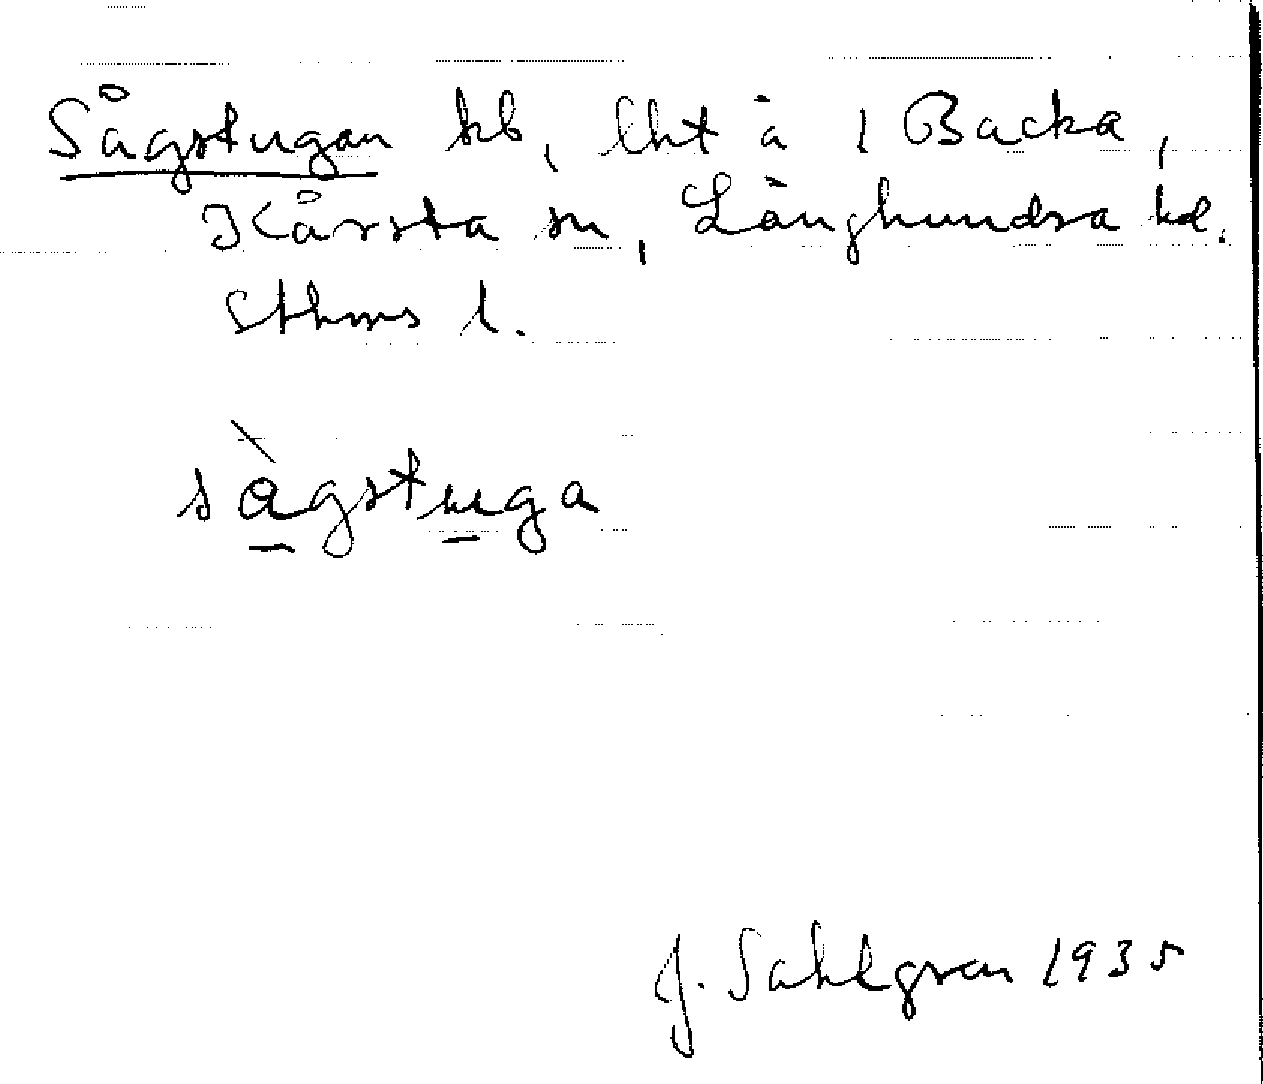 Sågstugan kb, lht å 1 Backa,
Kårsta sn, Långhundra hd.
Sthms l.
sàgstuga
J. Sahlgren 1935